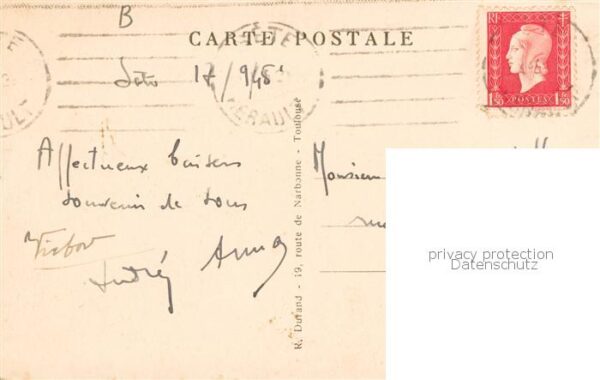 B
CARTE POSTALE
17/9/45
HÉRAULT
RF
1F50 POSTES 1F50
Affectueux baisers
souvenir de tous
Victor
André Anna
Monsieur
R. Durand - 19, route de Narbonne - Toulouse
privacy protection
Datenschutz